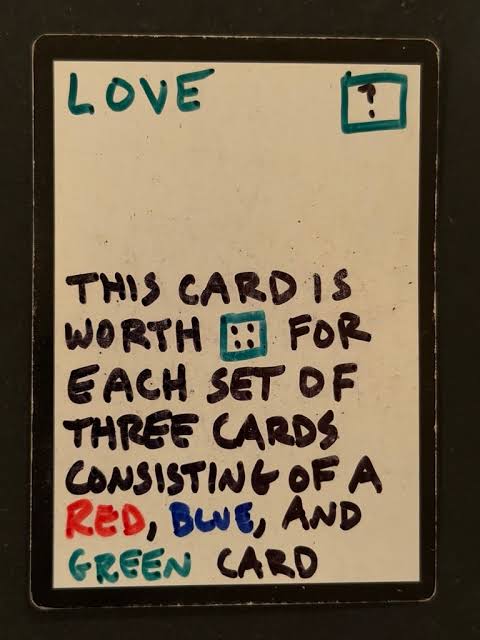 LOVE ?
THIS CARD IS
WORTH :: FOR
EACH SET OF
THREE CARDS
CONSISTING OF A
RED, BLUE, AND
GREEN CARD